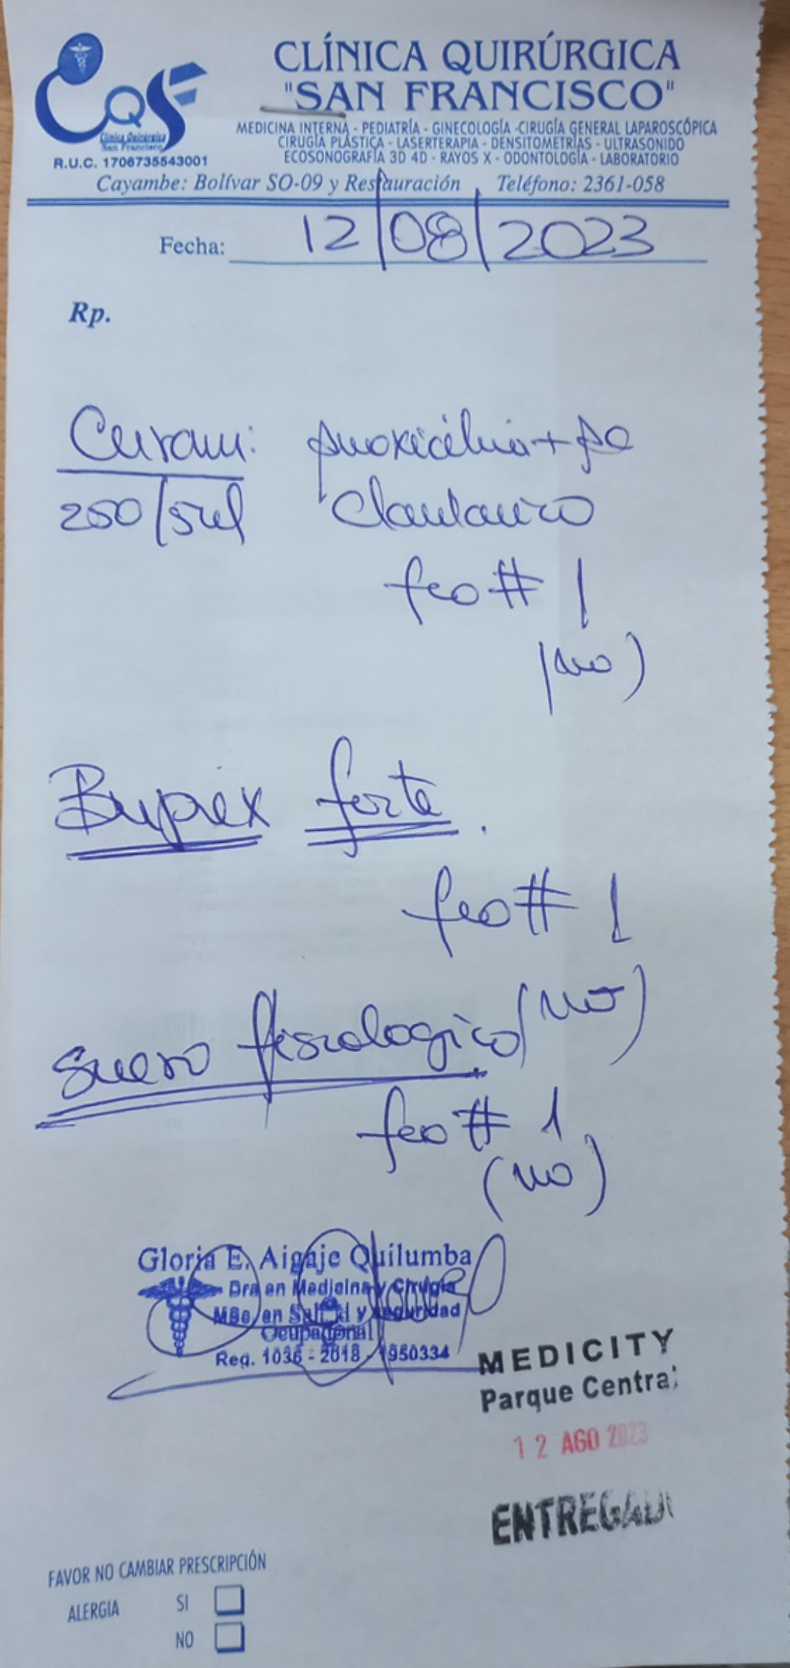 CQSF
Clínica Quirúrgica
San Francisco
R.U.C. 1706735543001
CLÍNICA QUIRÚRGICA
"SAN FRANCISCO"
MEDICINA INTERNA - PEDIATRÍA - GINECOLOGÍA -CIRUGÍA GENERAL LAPAROSCÓPICA
CIRUGÍA PLÁSTICA - LASERTERAPIA - DENSITOMETRÍAS - ULTRASONIDO
ECOSONOGRAFÍA 3D 4D - RAYOS X - ODONTOLOGÍA - LABORATORIO
Cayambe: Bolívar SO-09 y Restauración Teléfono: 2361-058
Fecha: 12/08/2023
Rp.
Curam: Amoxicilina +
250/5ml Clavulanico
fco # 1
(uno)
Buprex forte.
fco # 1
(uno)
suero fisiologico
fco # 1
(uno)
Gloria E. Aigaje Quilumba
Dra en Medicina y Cirugía
MSc. en Salud y seguridad
Ocupacional
Reg. 1036 - 2018 - 1950334
MEDICITY
Parque Central
12 AGO 2023
ENTREGADO
FAVOR NO CAMBIAR PRESCRIPCIÓN
ALERGIA SI
NO